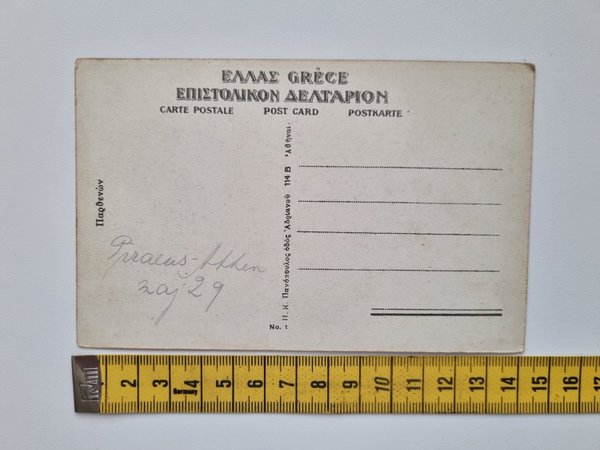 ΕΛΛΑΣ GRÈCE
ΕΠΙΣΤΟΛΙΚΟΝ ΔΕΛΤΑΡΙΟΝ
CARTE POSTALE POST CARD POSTKARTE
Παρθενών
Π. Κ. Πανόπουλος ὁδὸς Ἀδριανοῦ 114 Β Ἀθῆναι
Piraeus-Athen
maj 29
No. 1
2 3 4 5 6 7 8 9 10 11 12 13 14 15 16 17
Germany